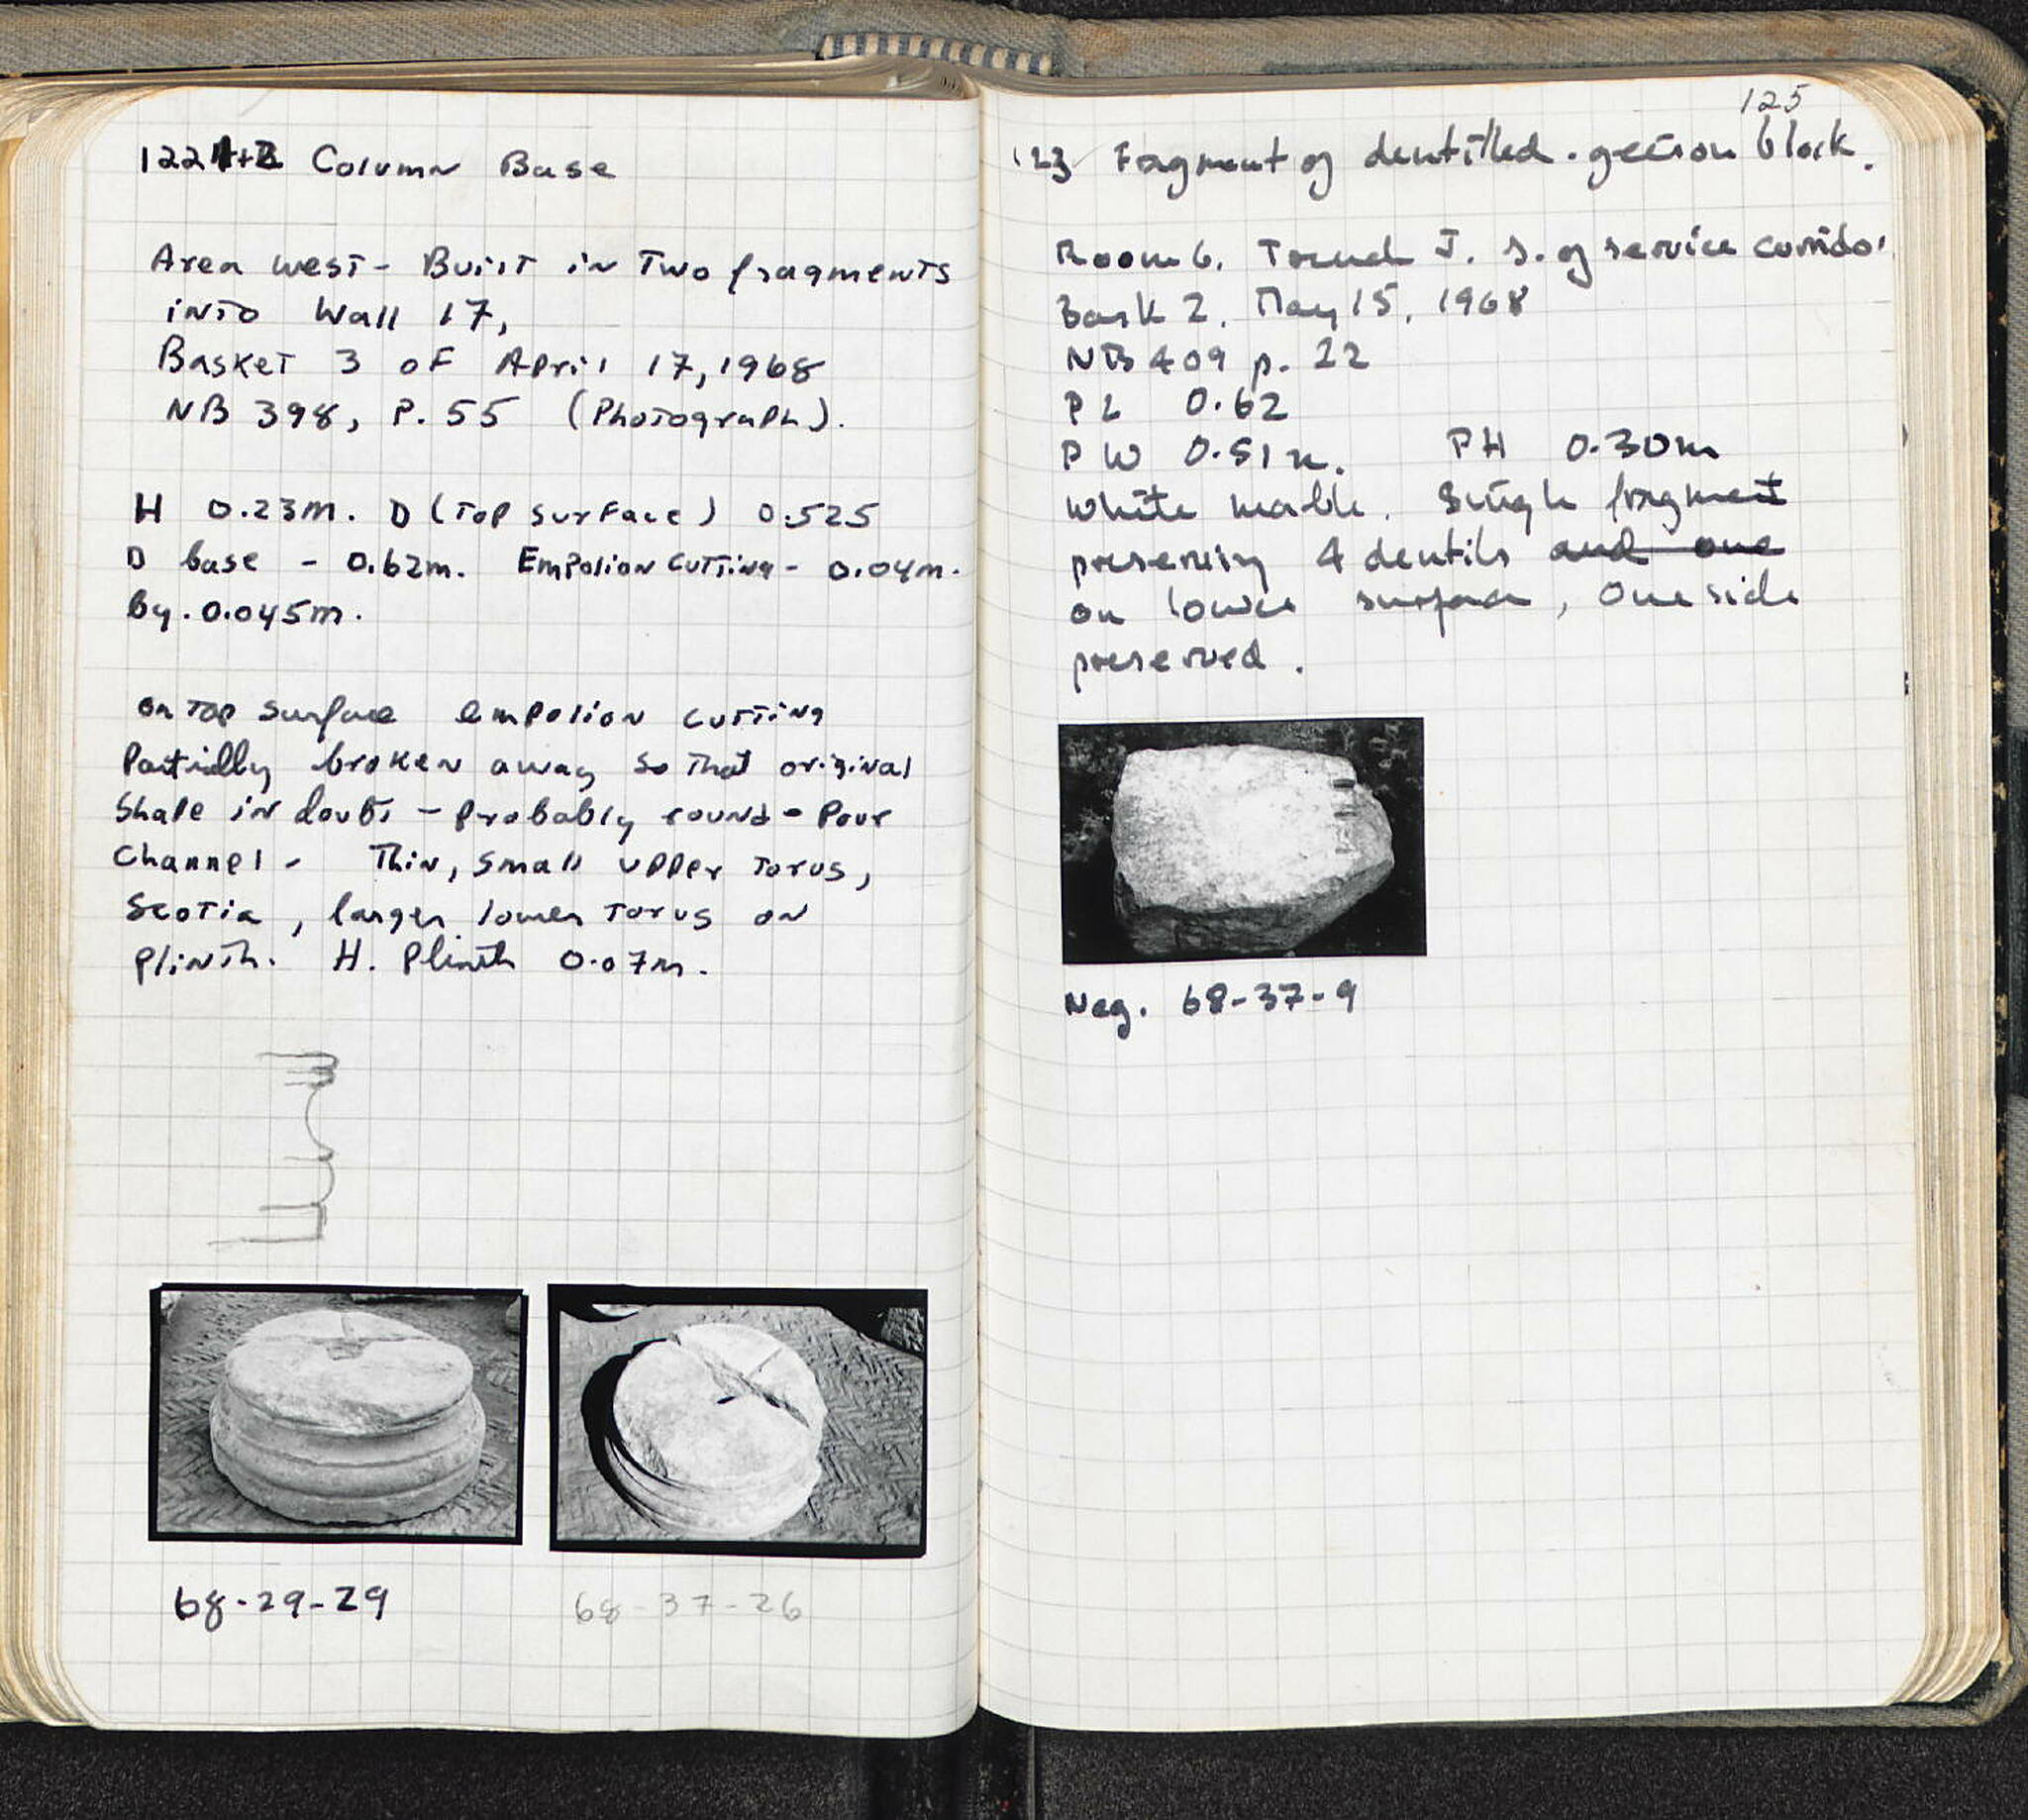 122 1+2 Column Base
Area west - Built in Two fragments
into Wall 17,
Basket 3 of April 17, 1968
NB 398, P. 55 (Photograph).
H 0.23m. D (Top surface) 0.525
D base - 0.62m. Empolion Cutting - 0.04m.
by. 0.045m.
on Top surface empolion cutting
Partially broken away so That original
Shape in doubt - probably round - Pour
Channel - Thin, small upper Torus,
Scotia, larger lower Torus on
Plinth. H. Plinth 0.07m.
68-29-29
68-37-26
125
123 Fragment of dentilled geison block.
Room 6. Trench J. S. of service corridor
Bask 2. May 15, 1968
NB 409 p. 22
PL 0.62
PW 0.51m. PH 0.30m
White marble. Single fragment
preserving 4 dentils and one
on lower surface, One side
preserved.
Neg. 68-37-9